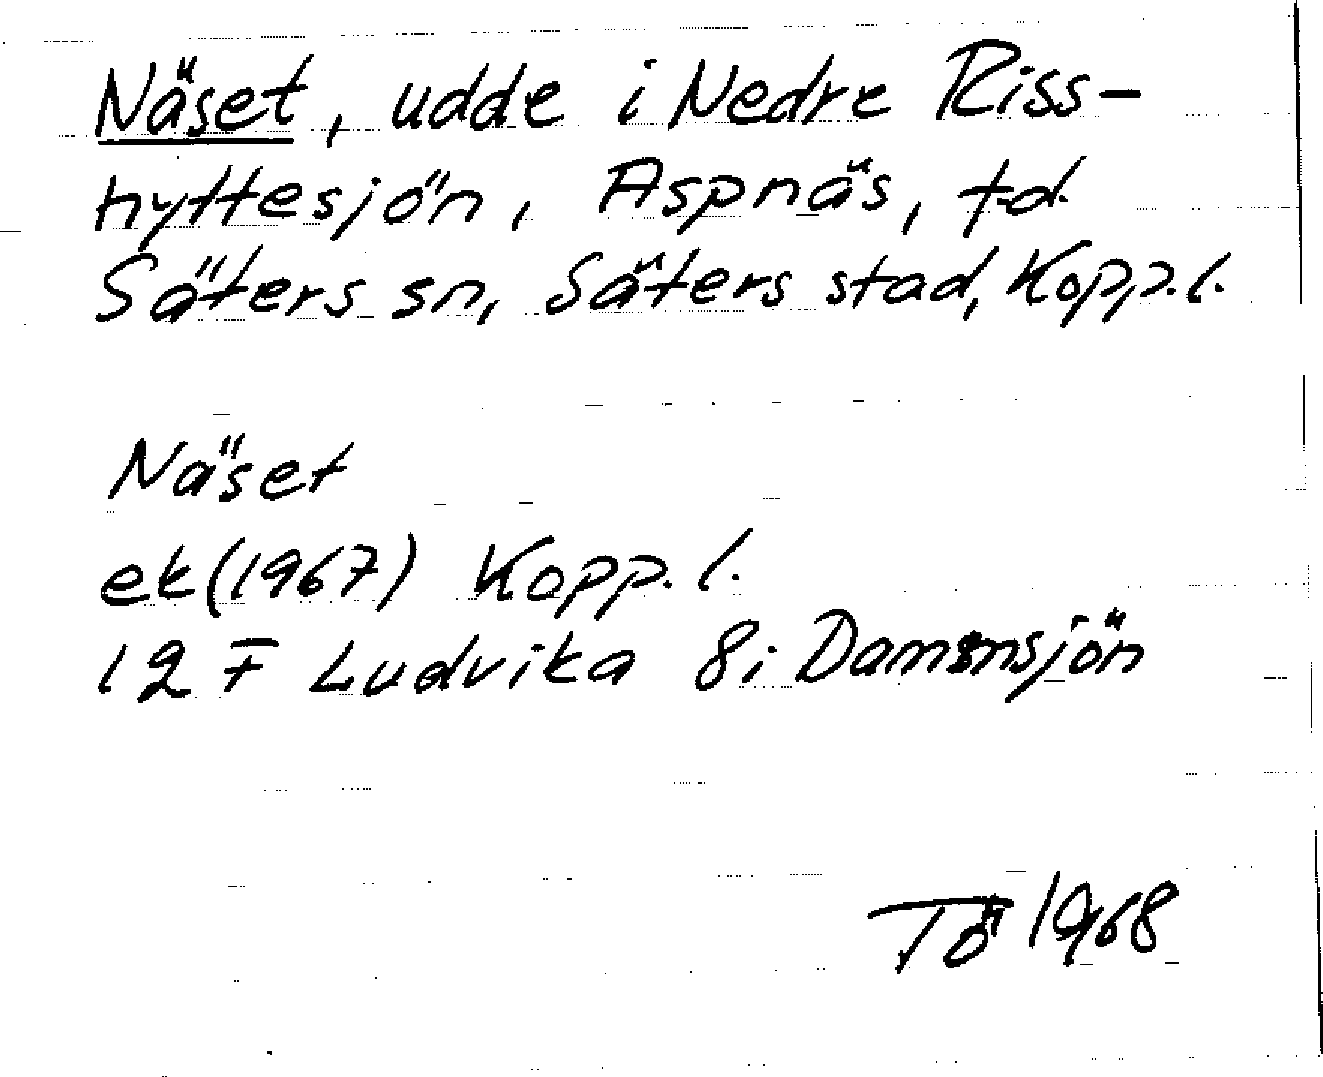 Näset, udde i Nedre Riss-
hyttesjön, Aspnäs, f.d.
Säters sn, Säters stad, Kopp.l.
Näset
ek (1967) Kopp. l.
12 F Ludvika 8i Damsnsjön
Tö 1968